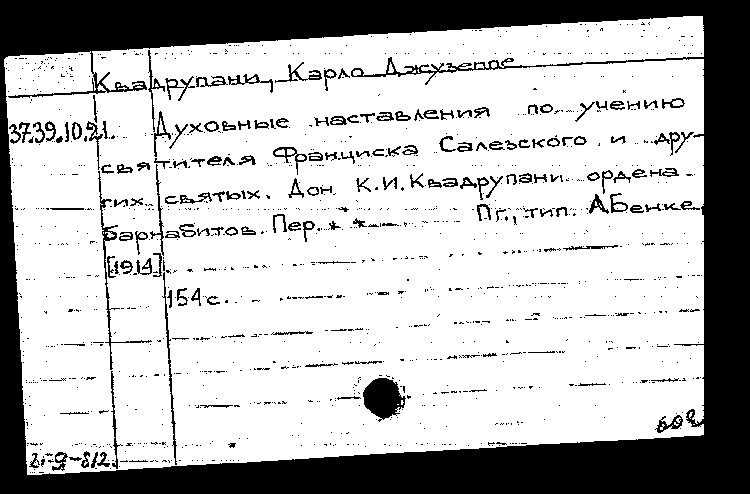 Квадрупани, Карло Джузеппе
37.39.10.21. Духовные наставления по учению
святителя Франциска Салезского и дру-
гих святых. Дон К.И.Квадрупани ордена
барнабитов. Пер. * * Пг., тип. А.Бенке,
[1914]
154 с.